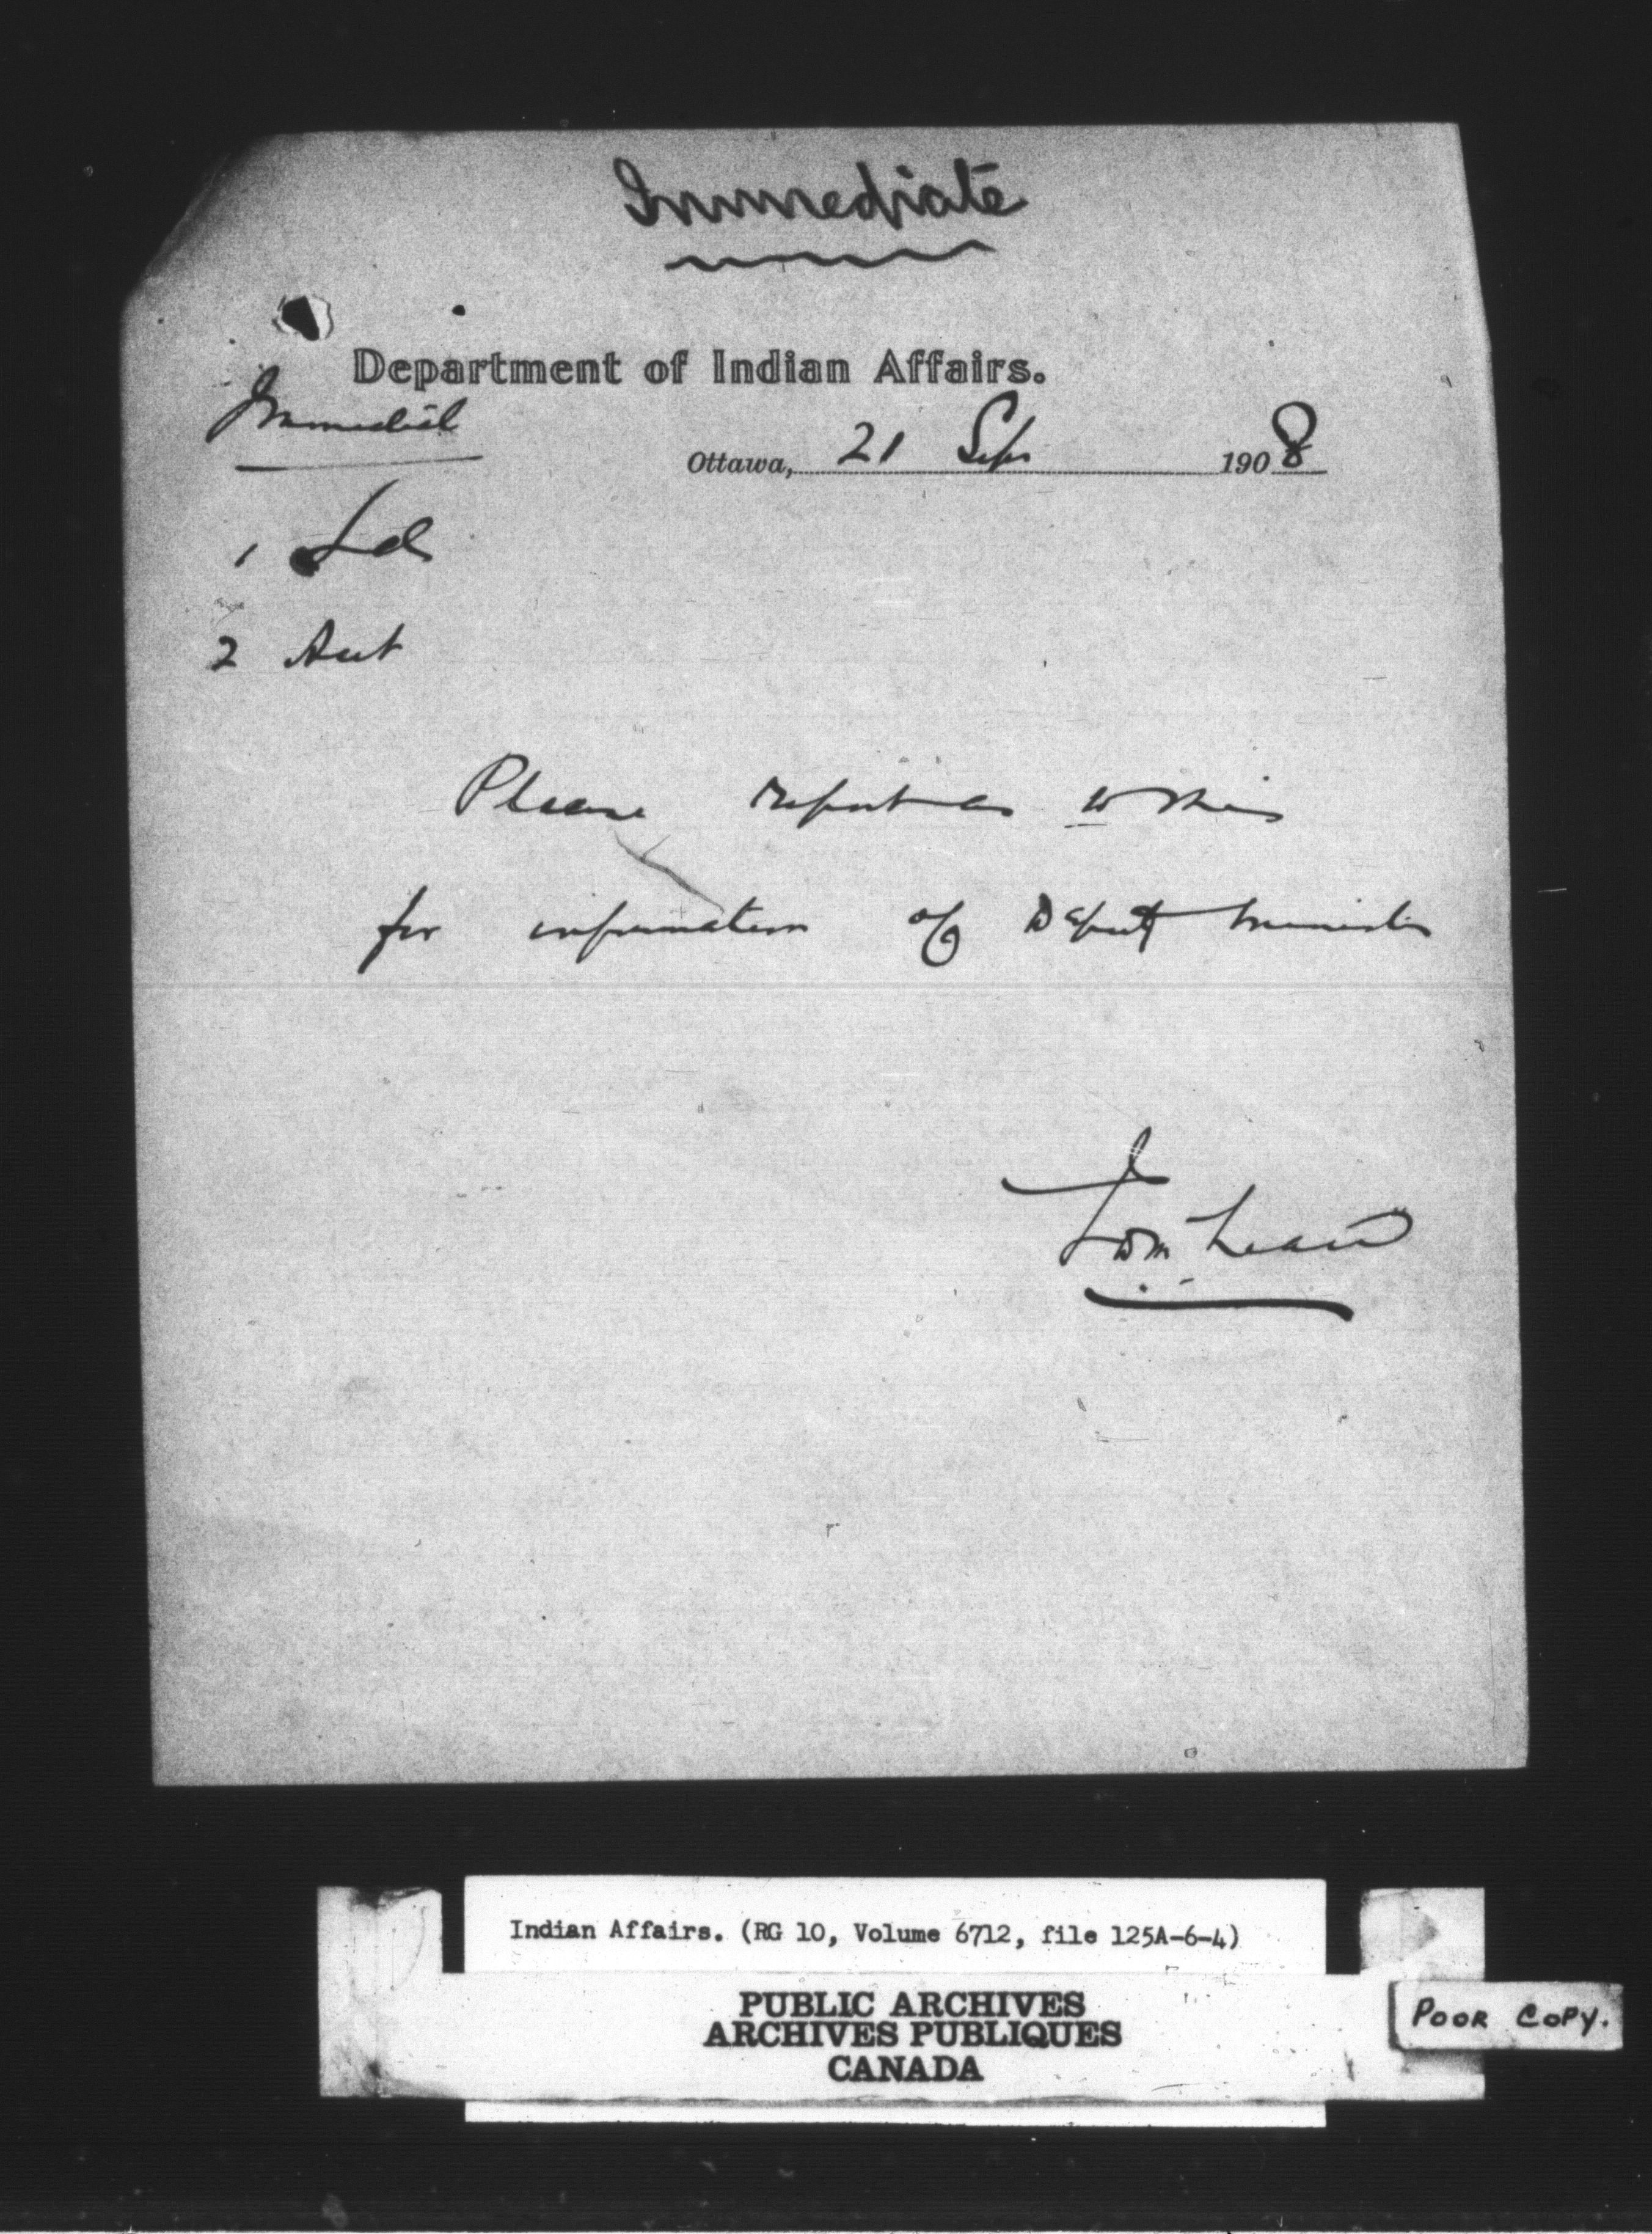 Immediate
Department of Indian Affairs.
Immediate
Ottawa, 21 Sept 1908
1
2 Acct
Please report as to this
for information of Deputy Minister
Indian Affairs. (RG 10, Volume 6712, file 125A-6-4)
PUBLIC ARCHIVES
ARCHIVES PUBLIQUES
CANADA
POOR COPY.